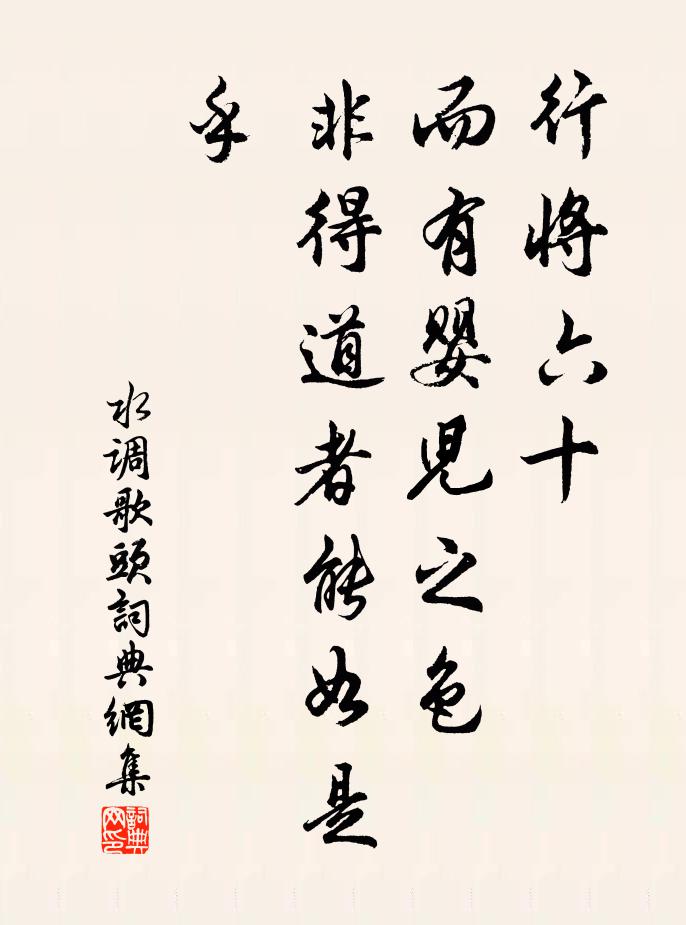 行將六十
而有嬰児之色
非得道者能如是
乎
水调歌頭詞典網集
詞典
网印